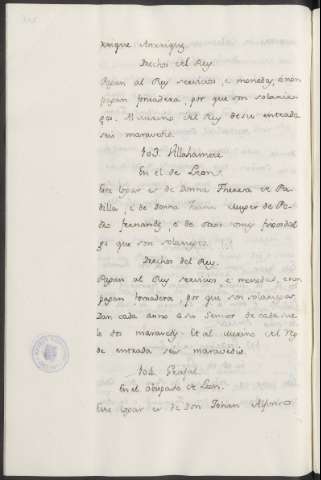 Enrique Anrriquez
Drechos del Rey.
Pagan al Rey servicios, e monedas, é non
pagan fonsadera, por que son solarie-
gos. Al merino del Rey de su entrada
seis maravedis.
103. Villahamete
En el de Leon.
Este logar es de Donna Theresa de Pa-
dilla, e de donna muger de Pe-
dro Fernandez, e de otros omes fijosdal-
go que son solariegos.
Drechos del Rey.
Pagan al Rey servicios e monedas, e non
pagan fonsadera, por que son solariegos.
Dan cada anno a su Sennor de cada sue-
lo dos maravedis. Et al merino del Rey
de entrada seis maravedis.
104. Grajal.
En el obispado de Leon.
Este logar es de Don Johan Alfonso